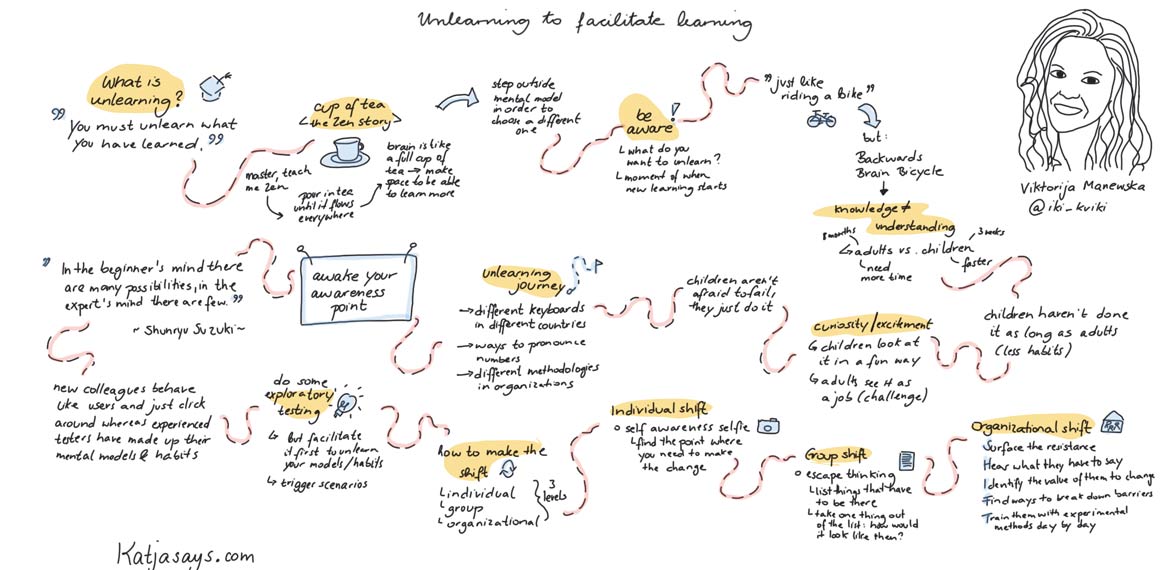 Unlearning to facilitate learning
What is
unlearning?
"You must unlearn what
you have learned."
cup of tea
<the Zen story>
master, teach
me Zen
pour in tea
until it flows
everywhere
brain is like
a full cup of
tea → make
space to be able
to learn more
step outside
mental model
in order to
choose a different
one
be
aware!
what do you
want to unlearn?
moment of when
new learning starts
"just like
riding a bike"
but:
Backwards
Brain Bicycle
Viktorija Manewska
@iki_kviki
knowledge ≠
understanding
8 months
3 weeks
adults vs. children
need
more time
faster
children haven't done
it as long as adults
(less habits)
curiosity/excitement
children look at
it in a fun way
adults see it as
a job (challenge)
children aren't
afraid to fail,
they just do it
unlearning
journey
→ different keyboards
in different countries
→ ways to pronounce
numbers
→ different methodologies
in organizations
awake your
awareness
point
"In the beginner's mind there
are many possibilities, in the
expert's mind there are few."
~ Shunryu Suzuki ~
new colleagues behave
like users and just click
around whereas experienced
testers have made up their
mental models & habits
do some
exploratory
testing
But facilitate
it first to unlearn
your models/habits
trigger scenarios
How to make the
shift
individual
group
organizational
3
levels
Individual shift
self awareness selfie
find the point where
you need to make
the change
Group shift
escape thinking
list things that have
to be there
take one thing out
of the list: how would
it look like then?
Organizational shift
Surface the resistance
Hear what they have to say
Identify the value of them to change
Find ways to break down barriers
Train them with experimental
methods day by day
Katjasays.com